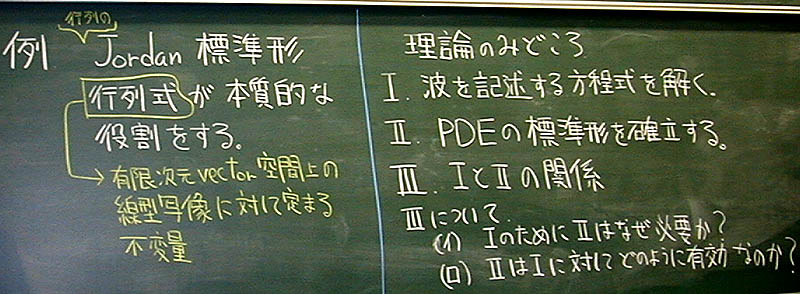 行列の
例 Jordan 標準形
行列式が本質的な
役割をする。
有限次元vector空間上の
線型写像に対して定まる
不変量
理論のみどころ
I. 波を記述する方程式を解く。
II. PDEの標準形を確立する。
III. IとIIの関係
IIIについて
(イ) IのためにIIはなぜ必要か?
(ロ) IIはIに対してどのように有効なのか?